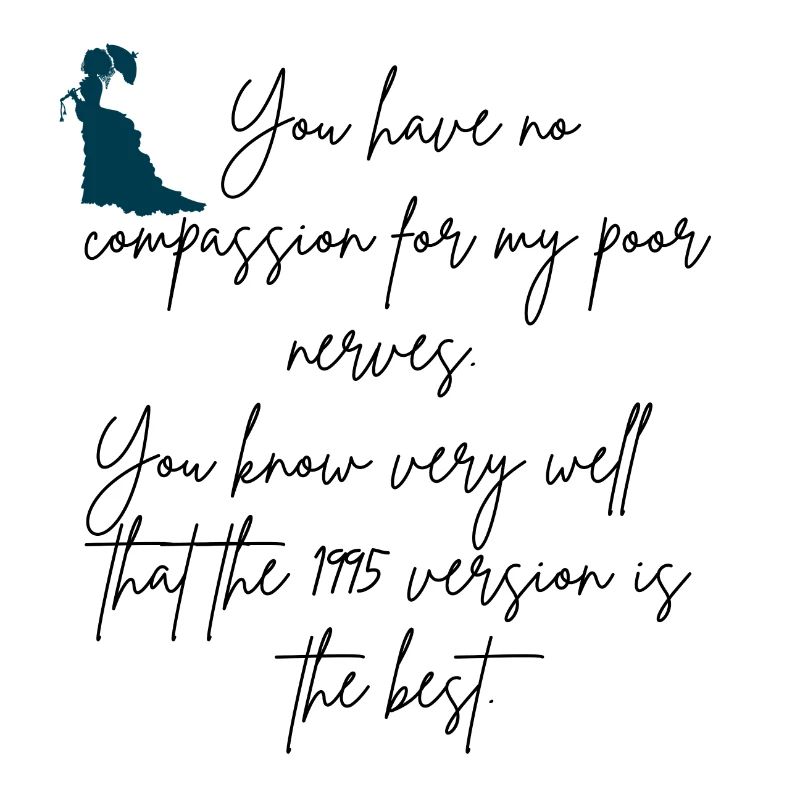 You have no
compassion for my poor
nerves.
You know very well
that the 1995 version is
the best.